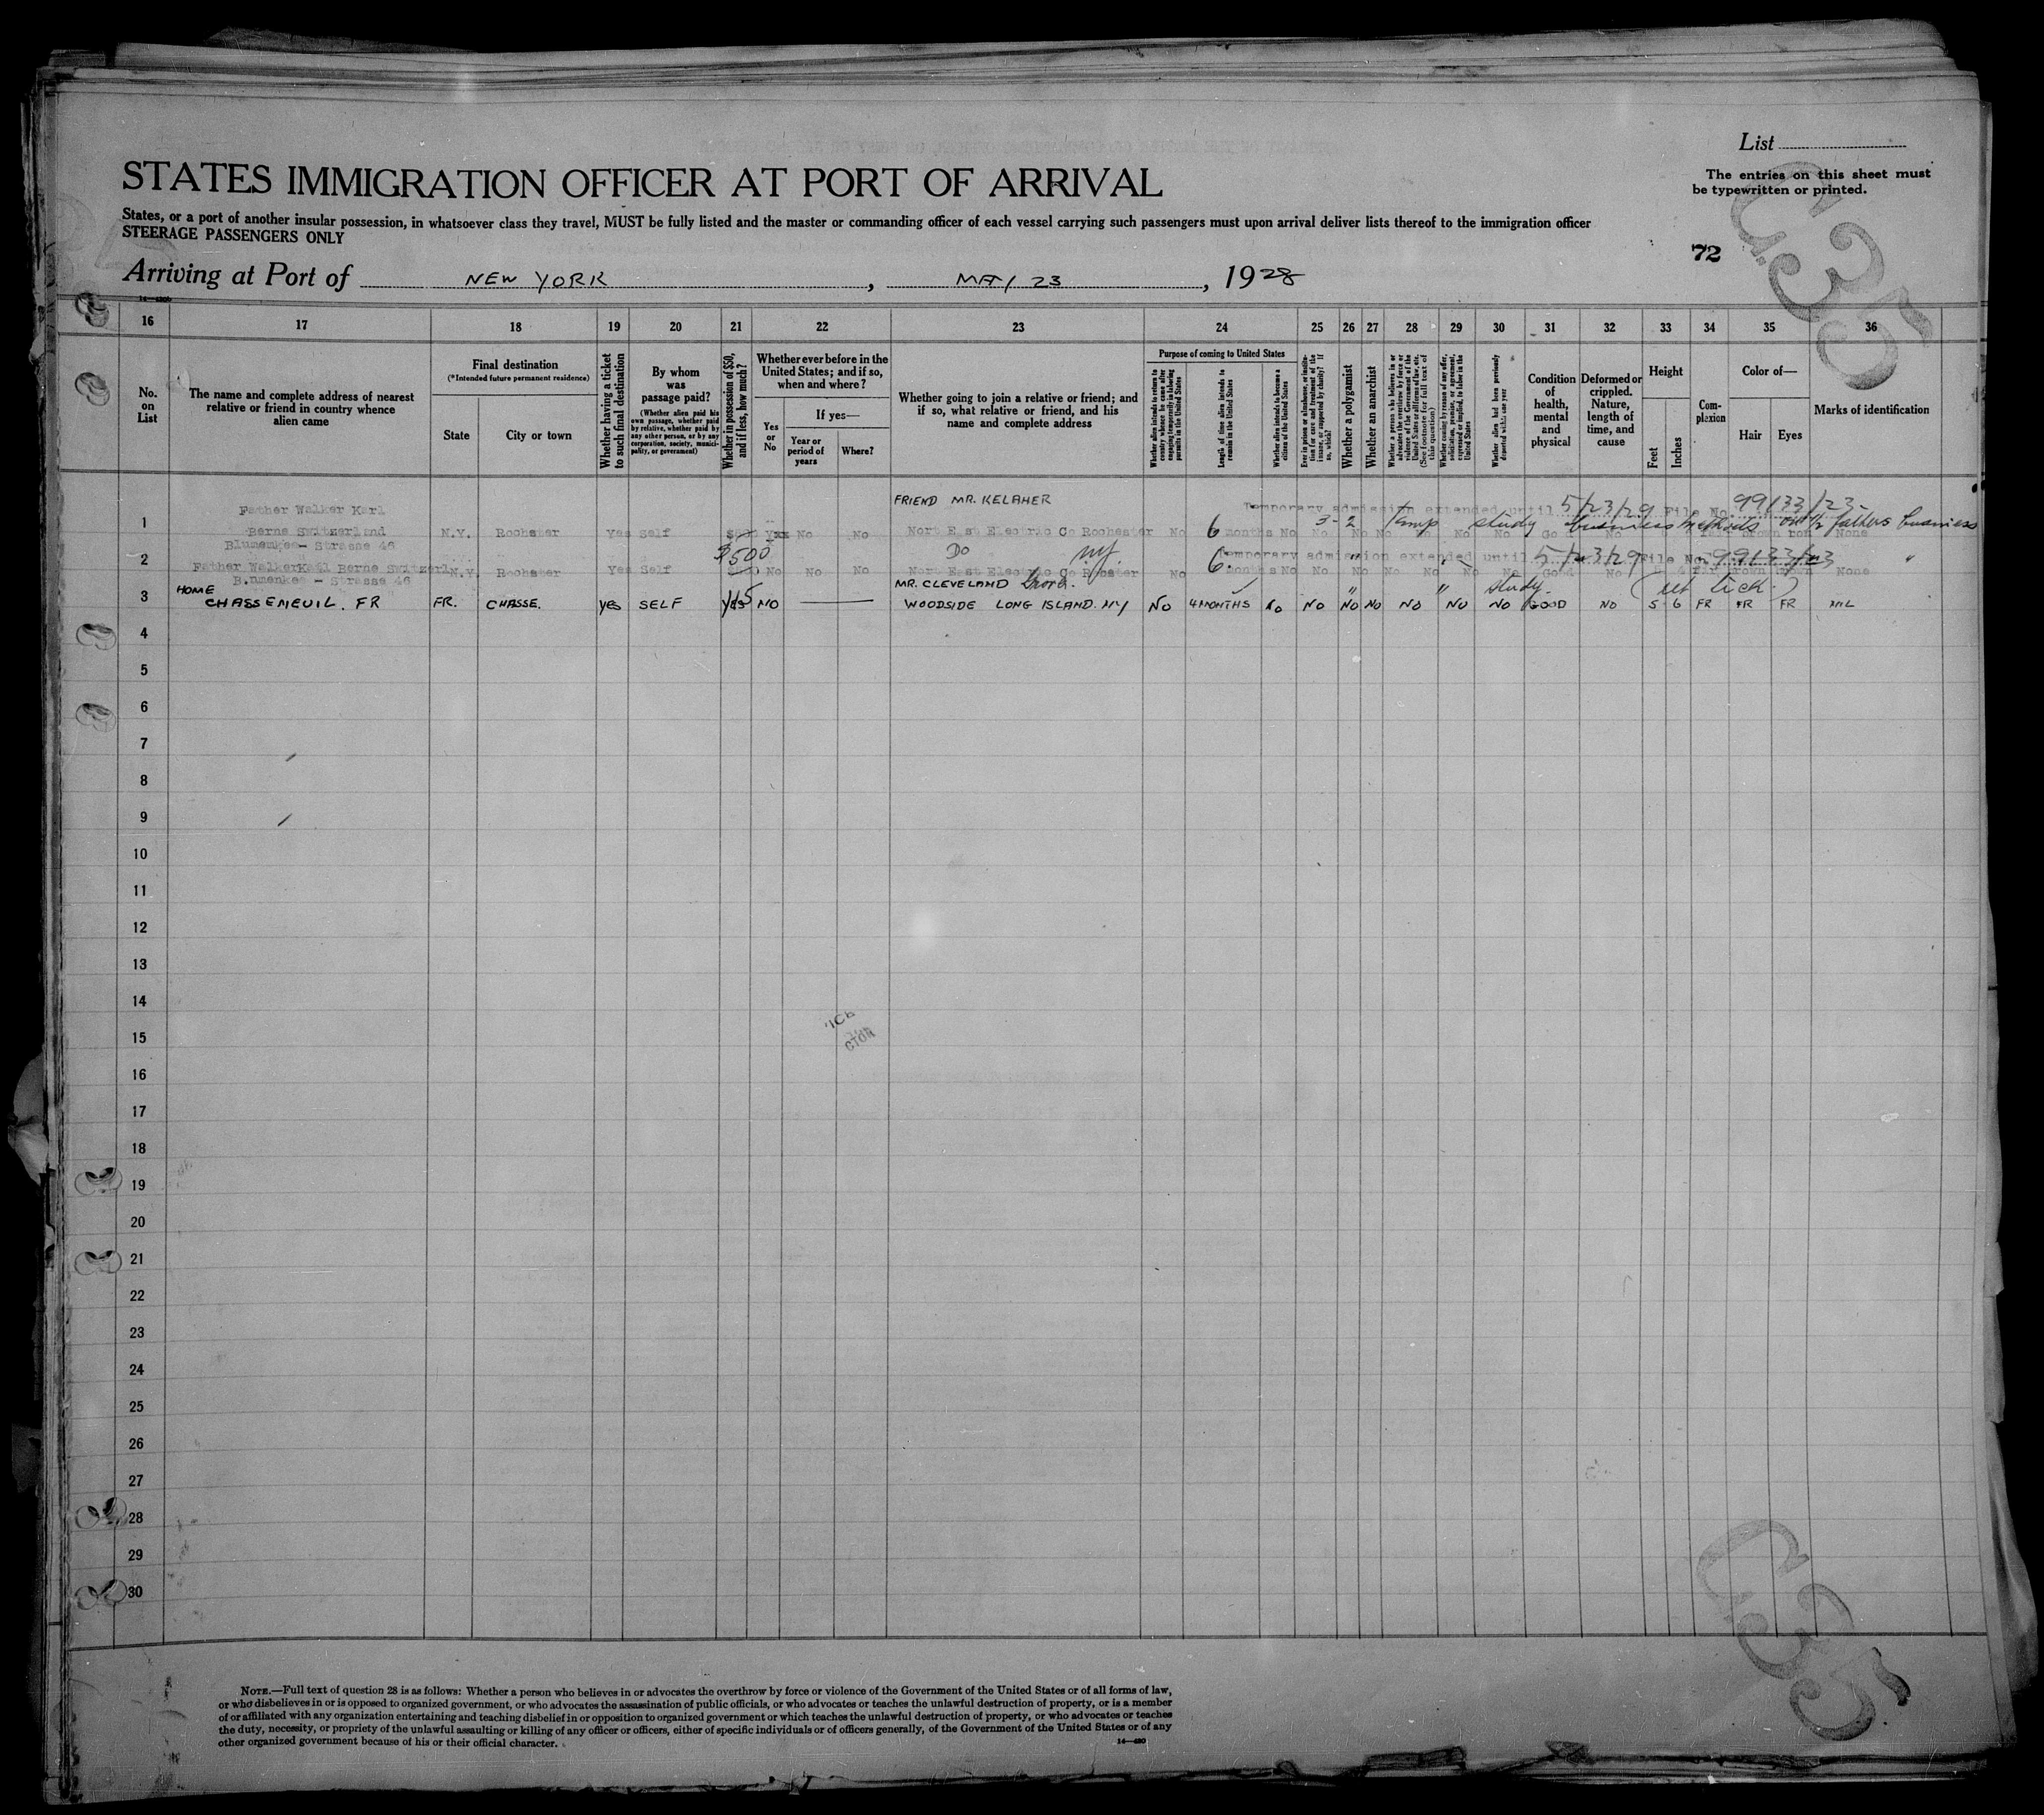 List
The entries on this sheet must
be typewritten or printed.
STATES IMMIGRATION OFFICER AT PORT OF ARRIVAL
States, or a port of another insular possession, in whatsoever class they travel, MUST be fully listed and the master or commanding officer of each vessel carrying such passengers must upon arrival deliver lists thereof to the immigration officer
STEERAGE PASSENGERS ONLY
72
Arriving at Port of NEW YORK, MAY 23, 1928
16 17 18 19 20 21 22 23 24 25 26 27 28 29 30 31 32 33 34 35 36
No.
on
List
The name and complete address of nearest
relative or friend in country whence
alien came
Final destination
(*Intended future permanent residence)
State
City or town
Whether having a ticket
to such final destination
By whom
was
passage paid?
(Whether alien paid his
own passage, whether paid
by relative, whether paid by
any other person, or by any
corporation, society, munici-
pality, or government)
Whether in possession of $50,
and if less, how much?
Whether ever before in the
United States; and if so,
when and where?
Yes
or
No
If yes—
Year or
period of
years
Where?
Whether going to join a relative or friend; and
if so, what relative or friend, and his
name and complete address
Purpose of coming to United States
Whether alien intends to return to
country whence he came after
engaging temporarily in laboring
pursuits in the United States
Length of time alien intends to
remain in the United States
Whether alien intends to become a
citizen of the United States
Ever in prison or almshouse, or institu-
tion for care and treatment of the
insane, or supported by charity? If
so, which?
Whether a polygamist
Whether an anarchist
Whether a person who believes in or
advocates the overthrow by force or
violence of the Government of the
United States or all forms of law, etc.
(See footnote for full text of
this question)
Whether coming by reason of any offer,
solicitation, promise, or agreement,
expressed or implied, to labor in the
United States
Whether alien had been previously
deported within one year
Condition
of
health,
mental
and
physical
Deformed or
crippled.
Nature,
length of
time, and
cause
Height
Feet
Inches
Com-
plexion
Color of—
Hair
Eyes
Marks of identification
FRIEND MR. KELAHER
Temporary admission extended until 5/23/29 File No. 99133/23
Father Walker Karl
3-2 temp study business methods father's business
1 Berne Switzerland N.Y. Rochester Yes Self No No Nort East Electric Co Rochester No 6 months No No No No No No No Good No brown None
Blumenkee- Strasse 46
$500 Do NY.
Temporary admission extended until 5/23/29 File No. 99133/23
2 Father Walker Karl Berne Switzerl N.Y. Rochester Yes Self No No No North East Electric Co Rochester No 6 months No No No No No No No Good No brown brown None
Blumenkee - Strasse 46
MR. CLEVELAND study
HOME
3 CHASSENEUIL. FR FR. CHASSE. YES SELF YES NO WOODSIDE LONG ISLAND. NY NO 4 MONTHS NO NO NO NO NO NO NO GOOD NO 5 6 FR FR
4
5
6
7
8
9
10
11
12
13
14
15
16
17
18
19
20
21
22
23
24
25
26
27
28
29
30
NOTE.—Full text of question 28 is as follows: Whether a person who believes in or advocates the overthrow by force or violence of the Government of the United States or of all forms of law,
or who disbelieves in or is opposed to organized government, or who advocates the assassination of public officials, or who advocates or teaches the unlawful destruction of property, or is a member
of or affiliated with any organization entertaining and teaching disbelief in or opposition to organized government or which teaches the unlawful destruction of property, or who advocates or teaches
the duty, necessity, or propriety of the unlawful assaulting or killing of any officer or officers, either of specific individuals or of officers generally, of the Government of the United States or of any
other organized government because of his or their official character.
14—480